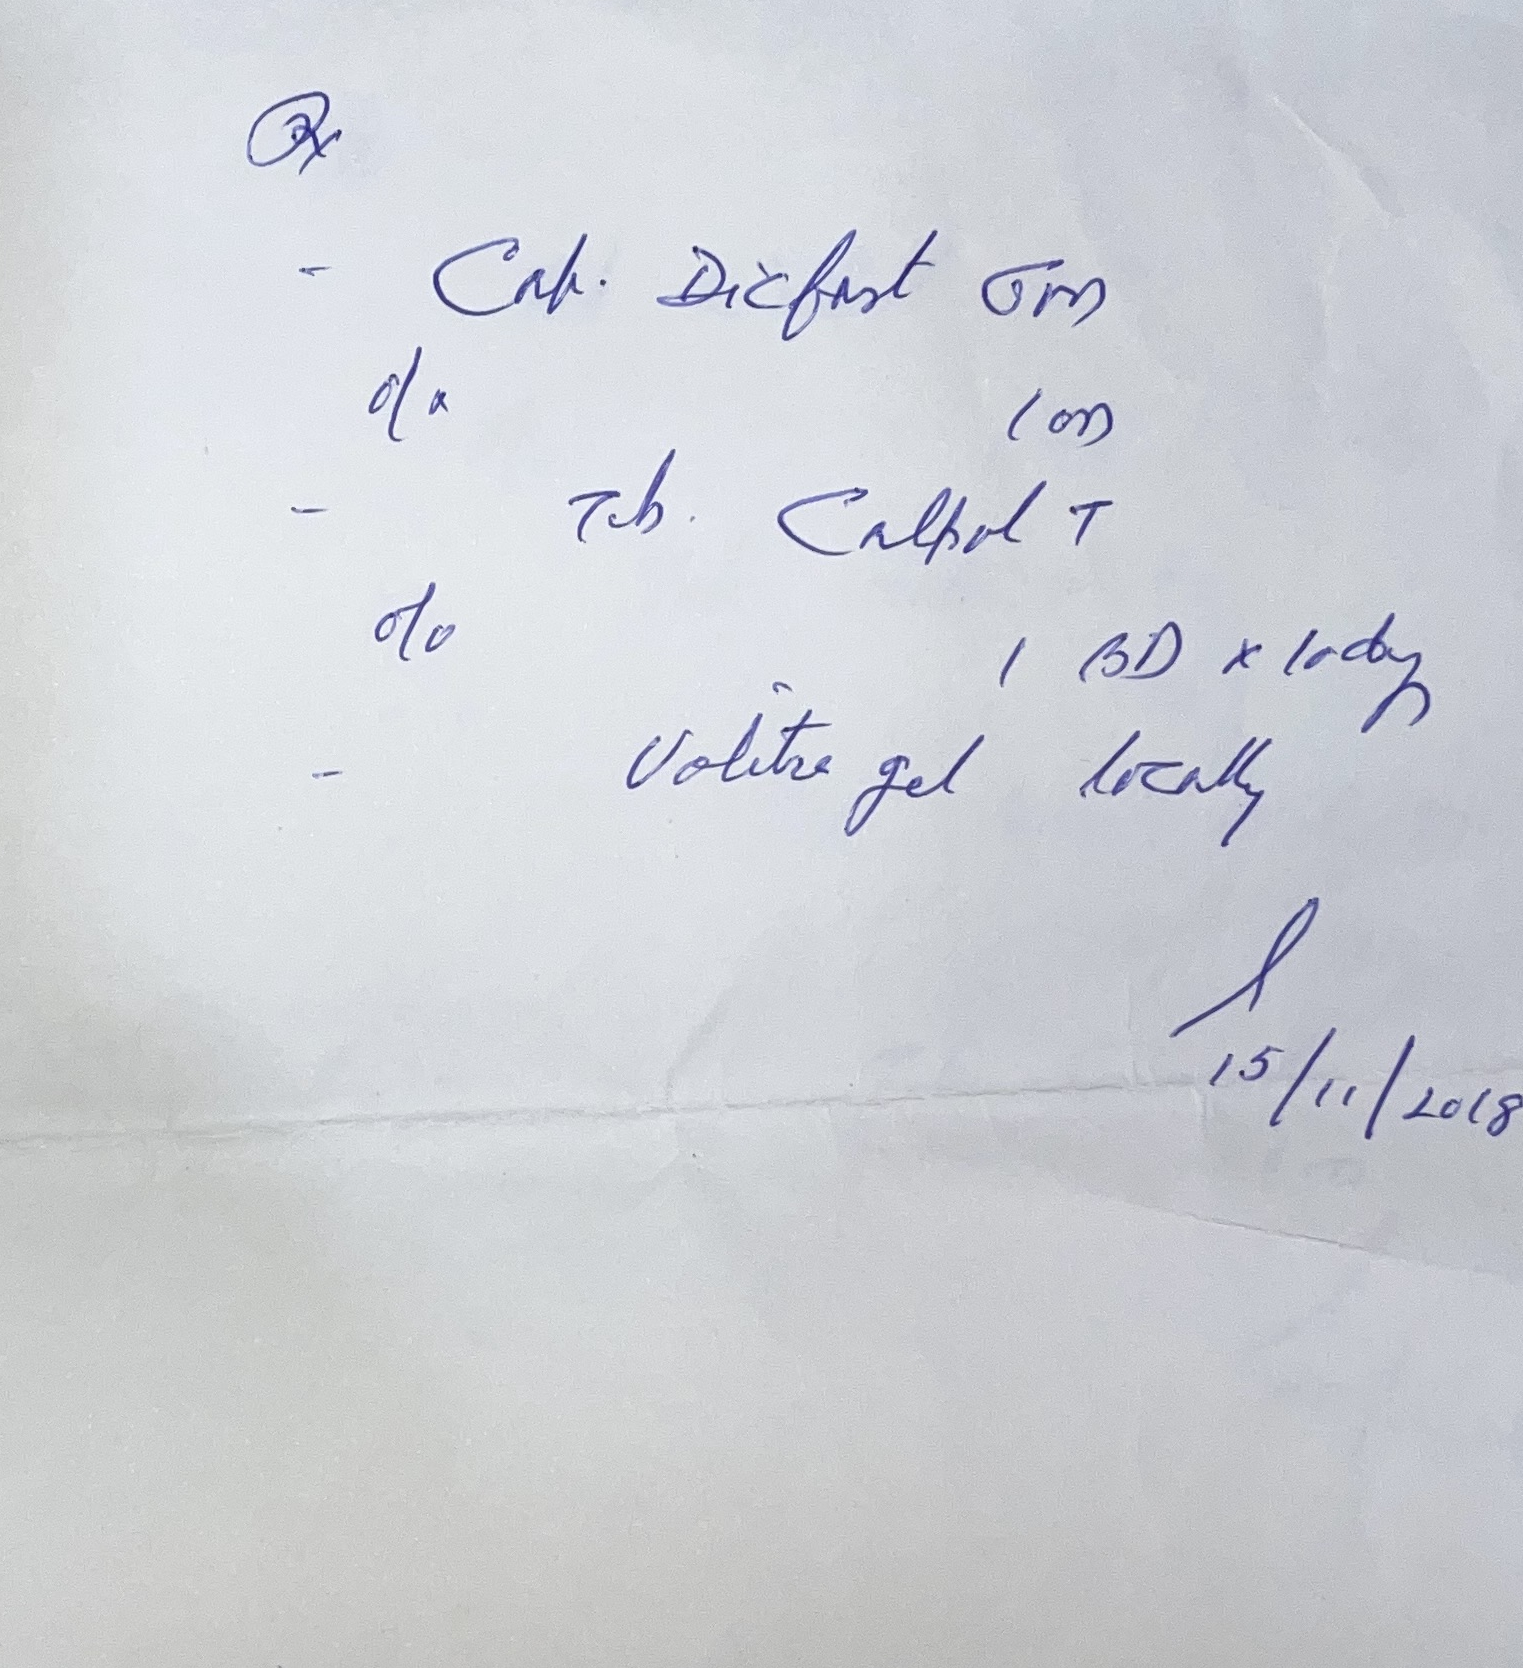 Rx
- Cap. Dicfast
1 on
- Tab. Calpol T
1 BD x 10 days
- Volitra gel locally
15/11/2018